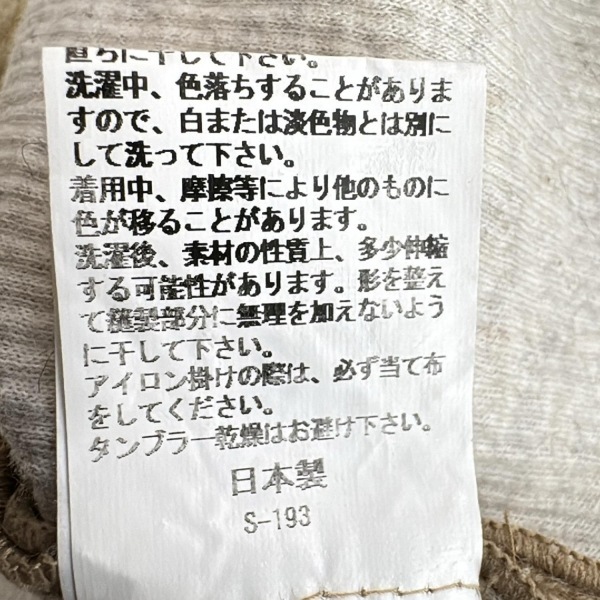 直ちに干して下さい。
洗濯中、色落ちすることがありま
すので、白または淡色物とは別に
して洗って下さい。
着用中、摩擦等により他のものに
色が移ることがあります。
洗濯後、素材の性質上、多少伸縮
する可能性があります。形を整え
て縫製部分に無理を加えないよう
に干して下さい。
アイロン掛けの際は、必ず当て布
をしてください。
タンブラー乾燥はお避け下さい。
日本製
S-193